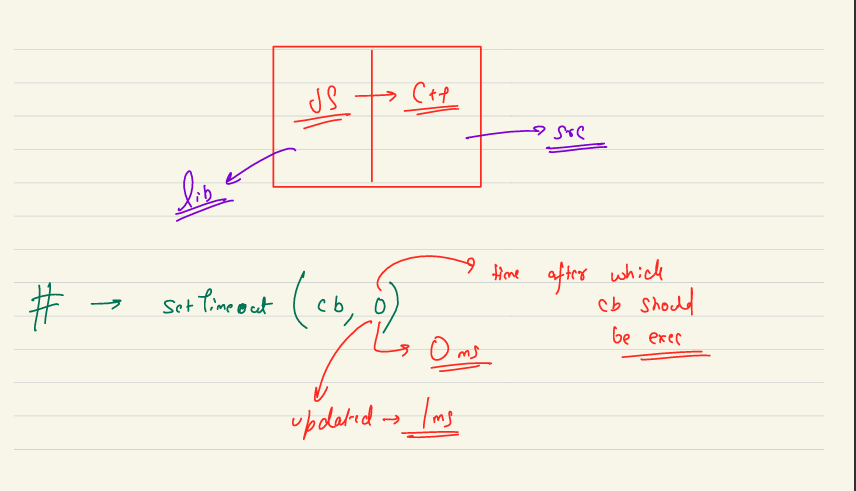 JS → C++
src
lib
# → setTimeout (cb, 0)
time after which
cb should
be exec
0 ms
updated → 1ms